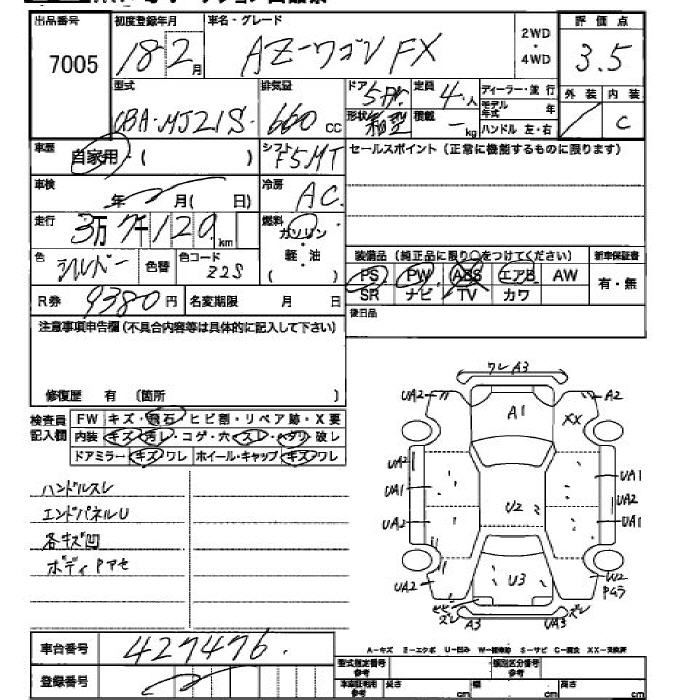 出品番号 初度登録年月 車名・グレード 2WD・4WD 評価点
7005 18 2月 AZ-ワゴン FX 3.5
型式 排気量 ドア 定員 ディーラー・並行 外装 内装
CBA-MJ21S 660cc 5D 4人 モデル年式 年
形状 箱型 積載 kg ハンドル 左・右 C
車歴 自家用・( ) シフト F5MT セールスポイント (正常に機能するものに限ります)
車検 年 月( 日) 冷房 AC
走行 3万7千120km 燃料 ガソリン・軽・油 ( )
色 シルバー 色替 色コード Z2S
装備品 (純正品に限り○をつけてください) 新車保証書
PS PW ABS エアB AW 有・無
SR ナビ TV カワ
R券 9380円 名変期限 月 日 後日品
注意事項申告欄 (不具合内容等は具体的に記入して下さい)
修復歴 有 (箇所 )
検査員記入欄 FW キズ・飛石・ヒビ割・リペア跡・X要
内装 キズ・汚レ・コゲ・穴・スレ・ヘタリ・破レ
ドアミラー キズ・ワレ ホイール・キャップ キズ・ワレ
ハンドルスレ
エンドパネルU
各キズ凹
ボディPアセ
ワレ A3
UA2 A1 XX A2
UA2 UA1
UA1 U2 UA2
UA2 UA1
UA2 U3 U2
Pムラ
A3 UA3 ズレ
車台番号 427476
登録番号
A-キズ E-エクボ U-凹み W-補修跡 S-サビ C-腐食 XX-交換済
型式指定番号 参考 類別区分番号 参考
車庫証明用 参考 長さ cm 幅 cm 高さ cm